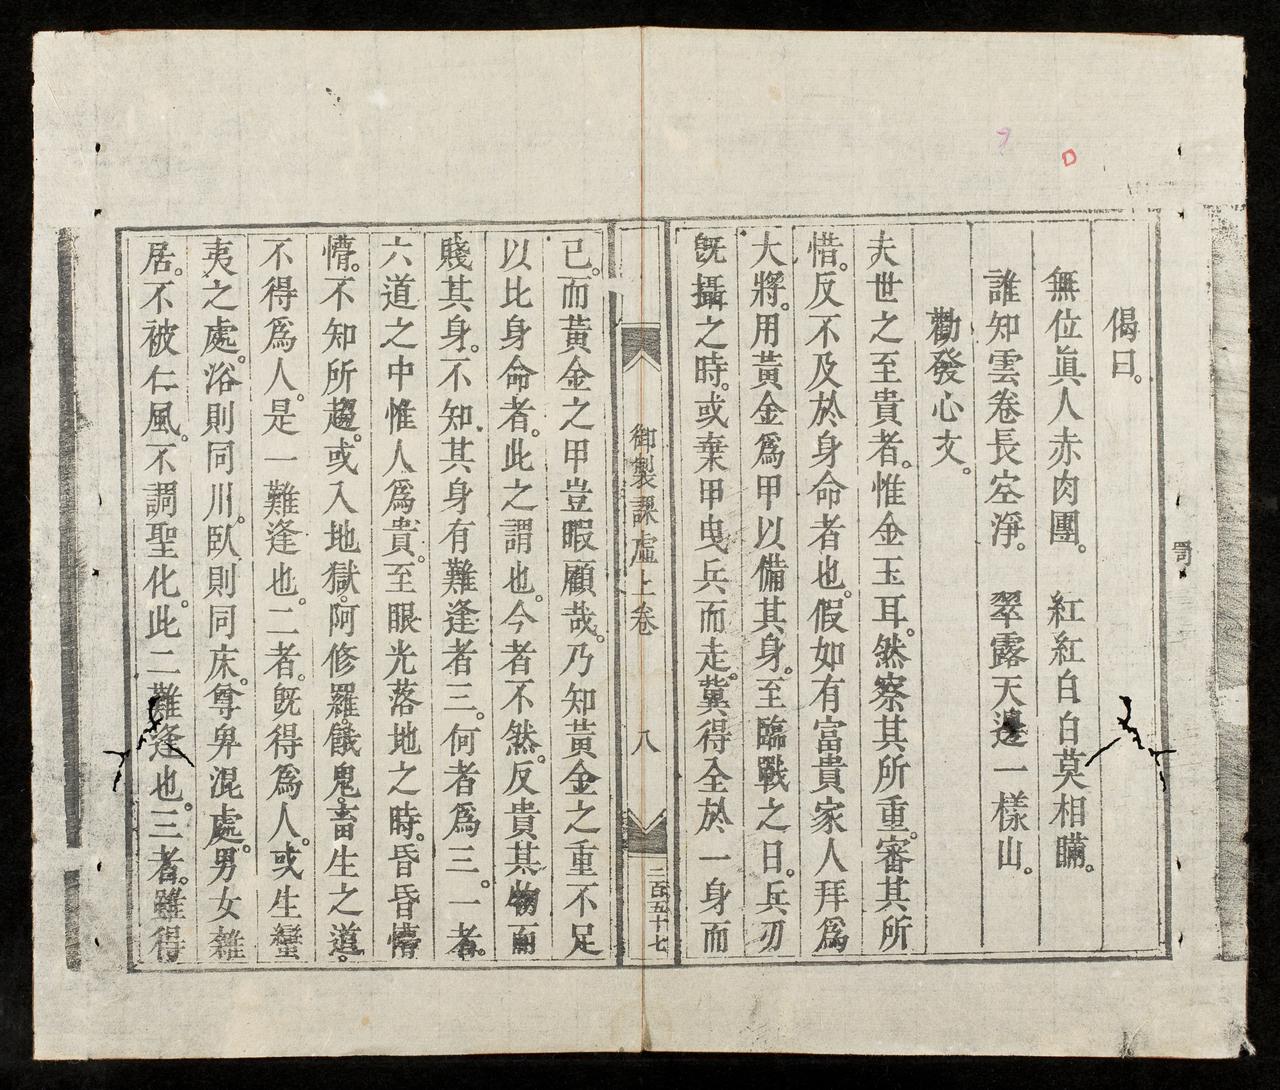 偈曰。
無位眞人赤肉團。　紅紅白白莫相瞞。
誰知雲卷長空淨。　翠露天邊一樣山。
勸發心文。
夫世之至貴者。惟金玉耳。然察其所重。審其所
惜。反不及於身命者也。假如有富貴家人拜爲
大將。用黃金爲甲以備其身。至臨戰之日。兵刃
旣攝之時。或棄甲曳兵而走。冀得全於一身而
御製課虛上卷　八　二百五十七
已。而黃金之甲豈暇顧哉。乃知黃金之重不足
以比身命者。此之謂也。今者不然。反貴其物而
賤其身。不知其身有難逢者三。何者爲三。一者。
六道之中惟人爲貴。至眼光落地之時。昏昏懵
懵。不知所趨。或入地獄。阿修羅。餓鬼。畜生之道。
不得爲人。是一難逢也。二者。旣得爲人。或生蠻
夷之處。浴則同川。臥則同床。尊卑混處。男女雜
居。不被仁風。不調聖化。此二難逢也。三者。雖得